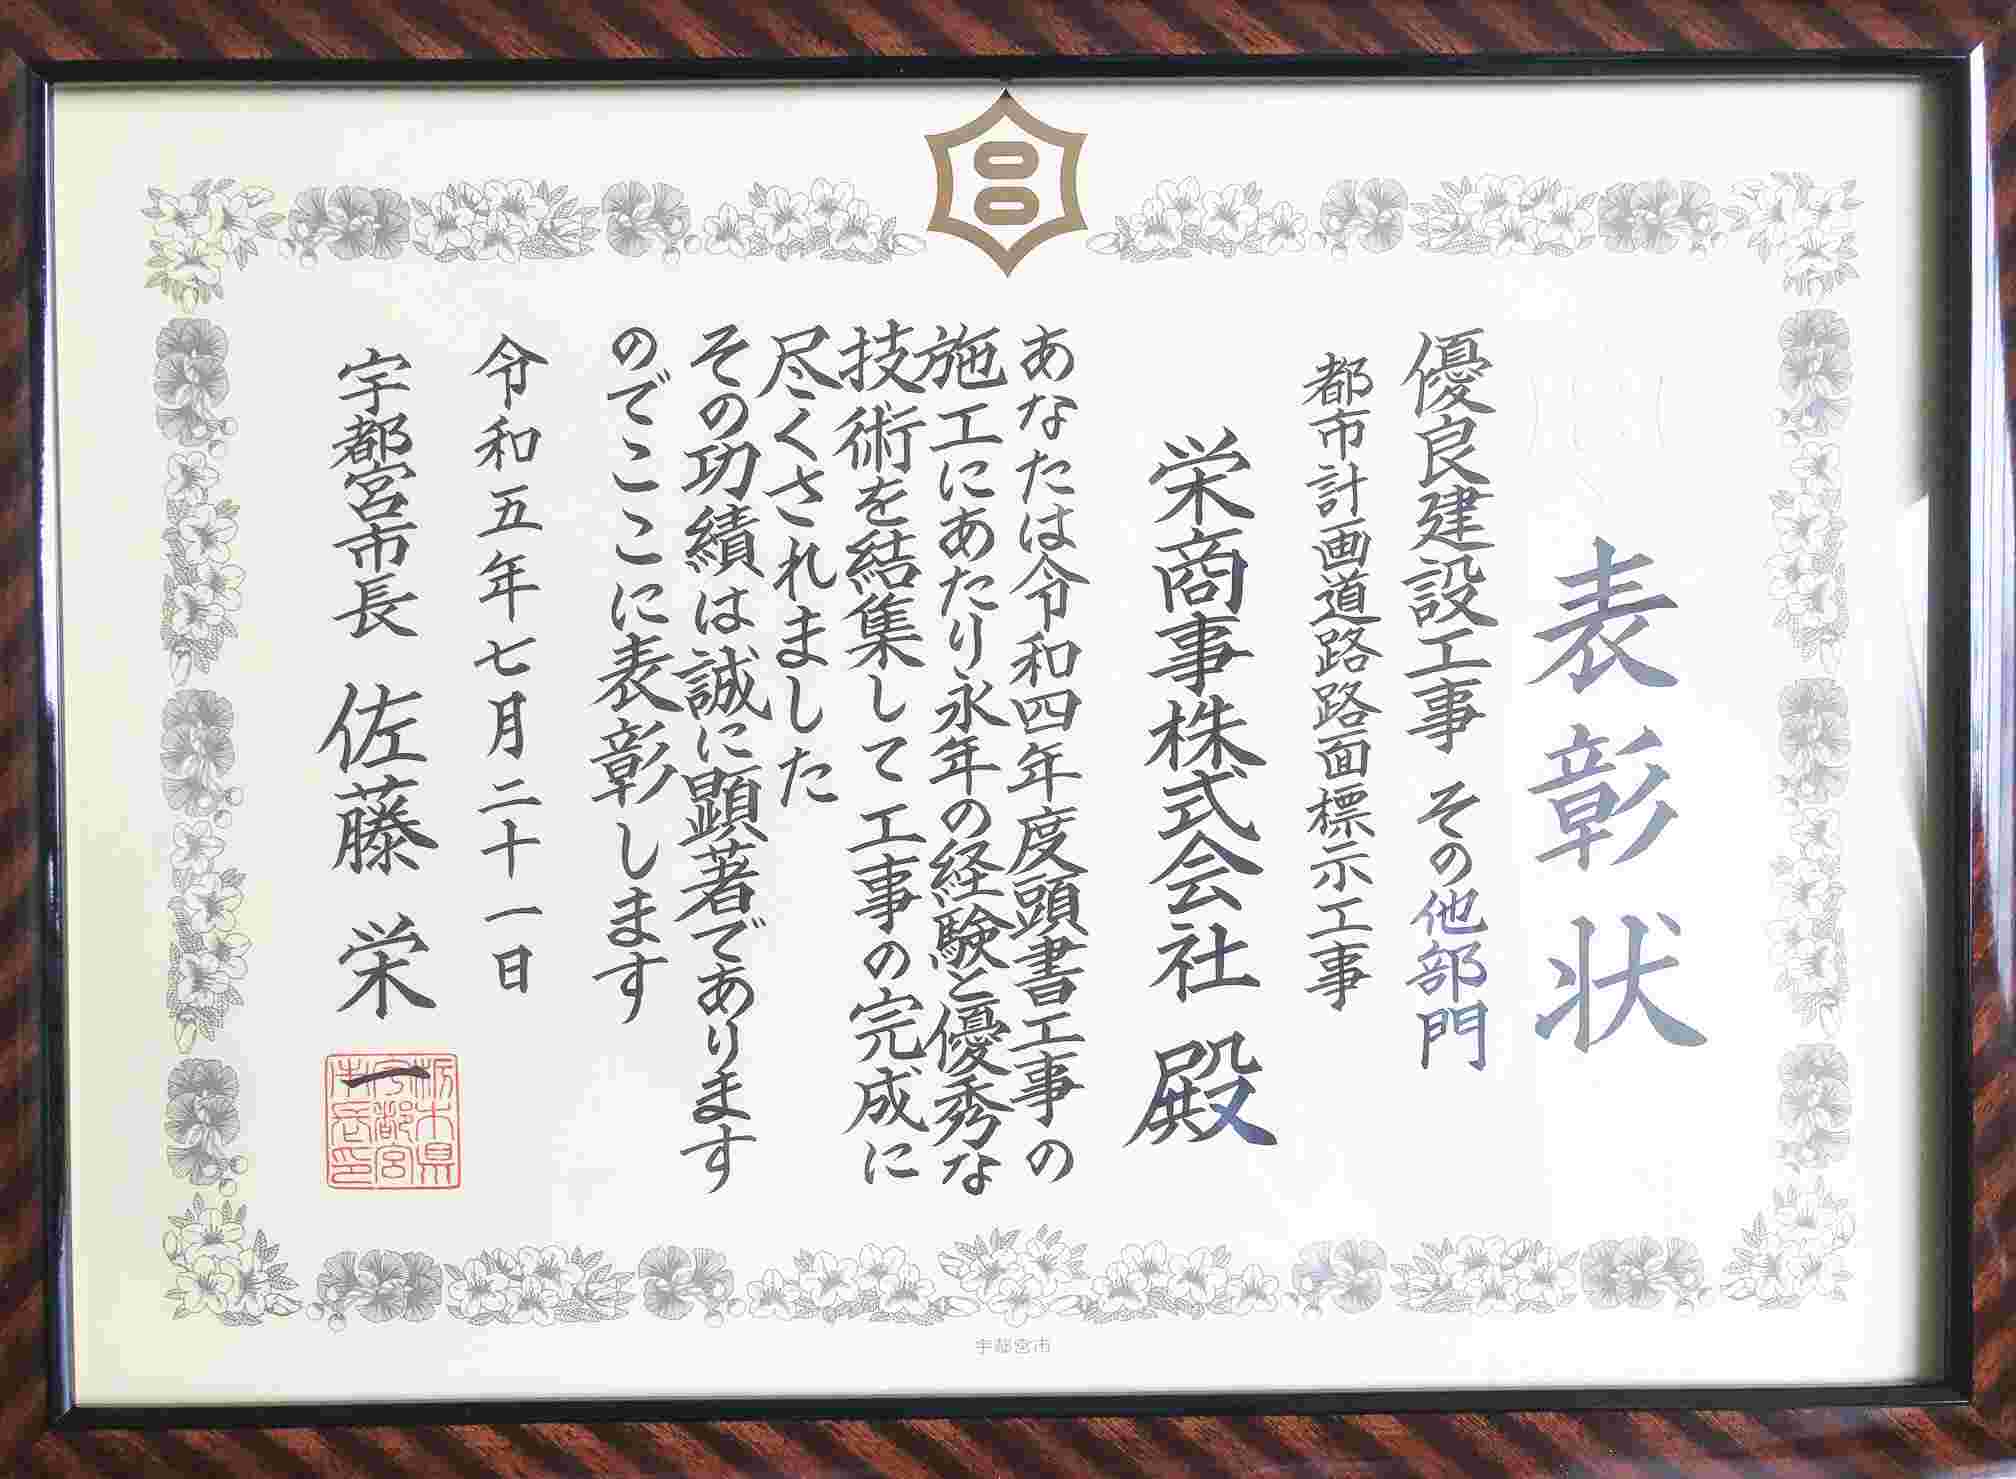 表彰状
優良建設工事 その他部門
都市計画道路路面標示工事
栄商事株式会社 殿
あなたは令和四年度頭書工事の
施工にあたり永年の経験と優秀な
技術を結集して工事の完成に
尽くされました
その功績は誠に顕著であります
のでここに表彰します
令和五年七月二十一日
宇都宮市長 佐藤栄一
栃木県
宇都宮
市長印
宇都宮市